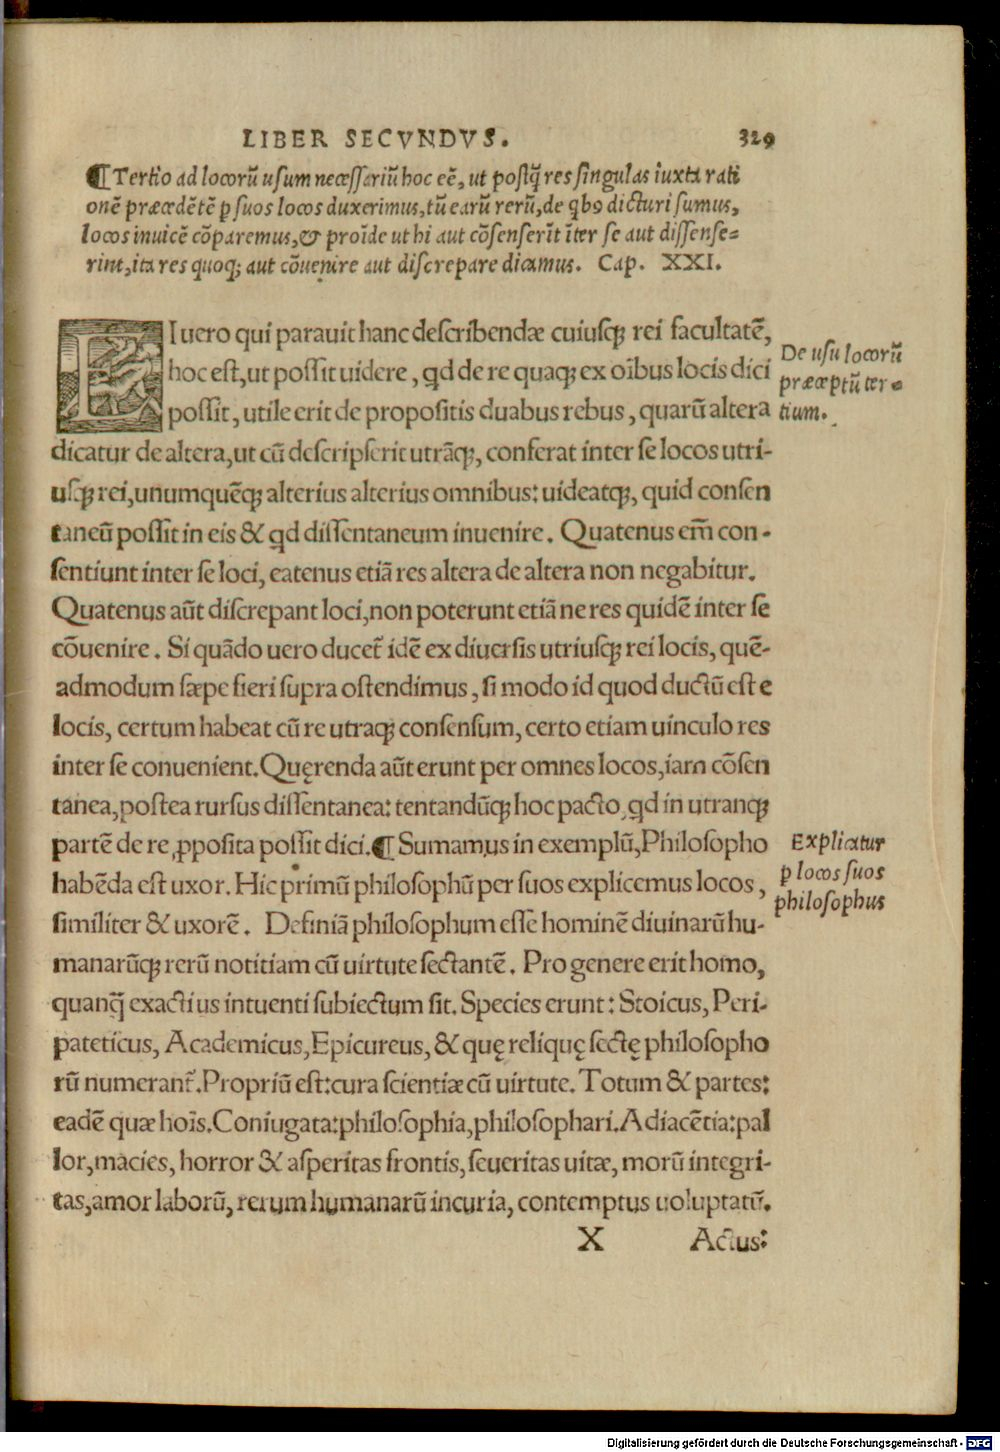 LIBER SECVNDVS. 329
¶ Tertio ad locorū usum necessariū hoc eē, ut postq̃ res singulas iuxta rati
onē præcedētē p suos locos duxerimus, tū earū rerū, de qbꝰ dicturi sumus,
locos inuicē cōparemus, & proīde ut hi aut cōsenserīt īter se aut dissense-
rint, ita res quoq; aut cōuenire aut discrepare dicamus. Cap. XXI.
I uero qui parauit hanc describendæ cuiusq; rei facultatē,
hoc est, ut possit uidere, qd de re quaq; ex oībus locis dici
possit, utile erit de propositis duabus rebus, quarū altera
dicatur de altera, ut cū descripserit utrāq;, conferat inter se locos utri-
usq; rei, unumquēq; alterius alterius omnibus: uideatq;, quid consen
taneū possit in eis & qd dissentaneum inuenire. Quatenus em̄ con-
sentiunt inter se loci, eatenus etiā res altera de altera non negabitur.
Quatenus aūt discrepant loci, non poterunt etiā ne res quidē inter se
cōuenire. Si quādo uero ducet᷑ idē ex diuersis utriusq; rei locis, quē-
admodum sæpe fieri supra ostendimus, si modo id quod ductū est e
locis, certum habeat cū re utraq; consensum, certo etiam uinculo res
inter se conuenient. Quęrenda aūt erunt per omnes locos, iam cōsen
tanea, postea rursus dissentanea: tentandūq; hoc pacto, qd in utranq;
partē de re ꝓposita possit dici. ¶ Sumamus in exemplū, Philosopho
habēda est uxor. Hic primū philosophū per suos explicemus locos,
similiter & uxorē. Definiā philosophum esse hominē diuinarū hu-
manarūq; rerū notitiam cū uirtute sectantē. Pro genere erit homo,
quanq̃ exactius intuenti subiectum sit. Species erunt: Stoicus, Peri-
pateticus, Academicus, Epicureus, & quę reliquę sectę philosopho
rū numerant᷑. Propriū est: cura scientiæ cū uirtute. Totum & partes:
eadē quæ hoīs. Coniugata: philosophia, philosophari. Adiacētia: pal
lor, macies, horror & asperitas frontis, seueritas uitæ, morū integri-
tas, amor laborū, rerum humanarū incuria, contemptus uoluptatū.
X Actus:
De usu locorū
præceptū ter-
tium.
Explicatur
p locos suos
philosophus
Digitalisierung gefördert durch die Deutsche Forschungsgemeinschaft - DFG